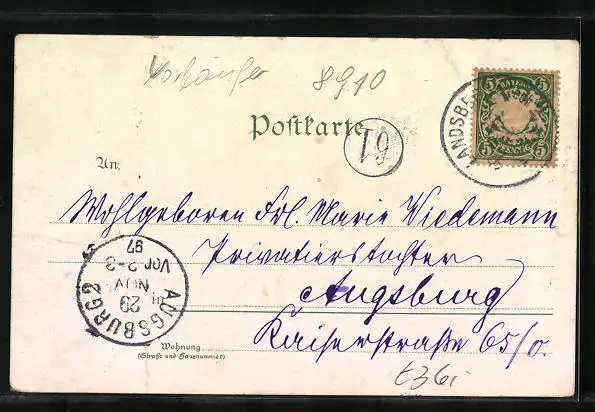 Vorläufer 8910
Postkarte
61
BAYERN
5 5
5 5
PFENNIG
LANDSBE
An
Wohlgeboren Frl. Marie Wiedemann
Privatierstochter
Augsburg
Kaiserstraße 65/0.
AUGSBURG 2
29
NOV.
Vor. 2-3
97
Wohnung
(Straße und Hausnummer)